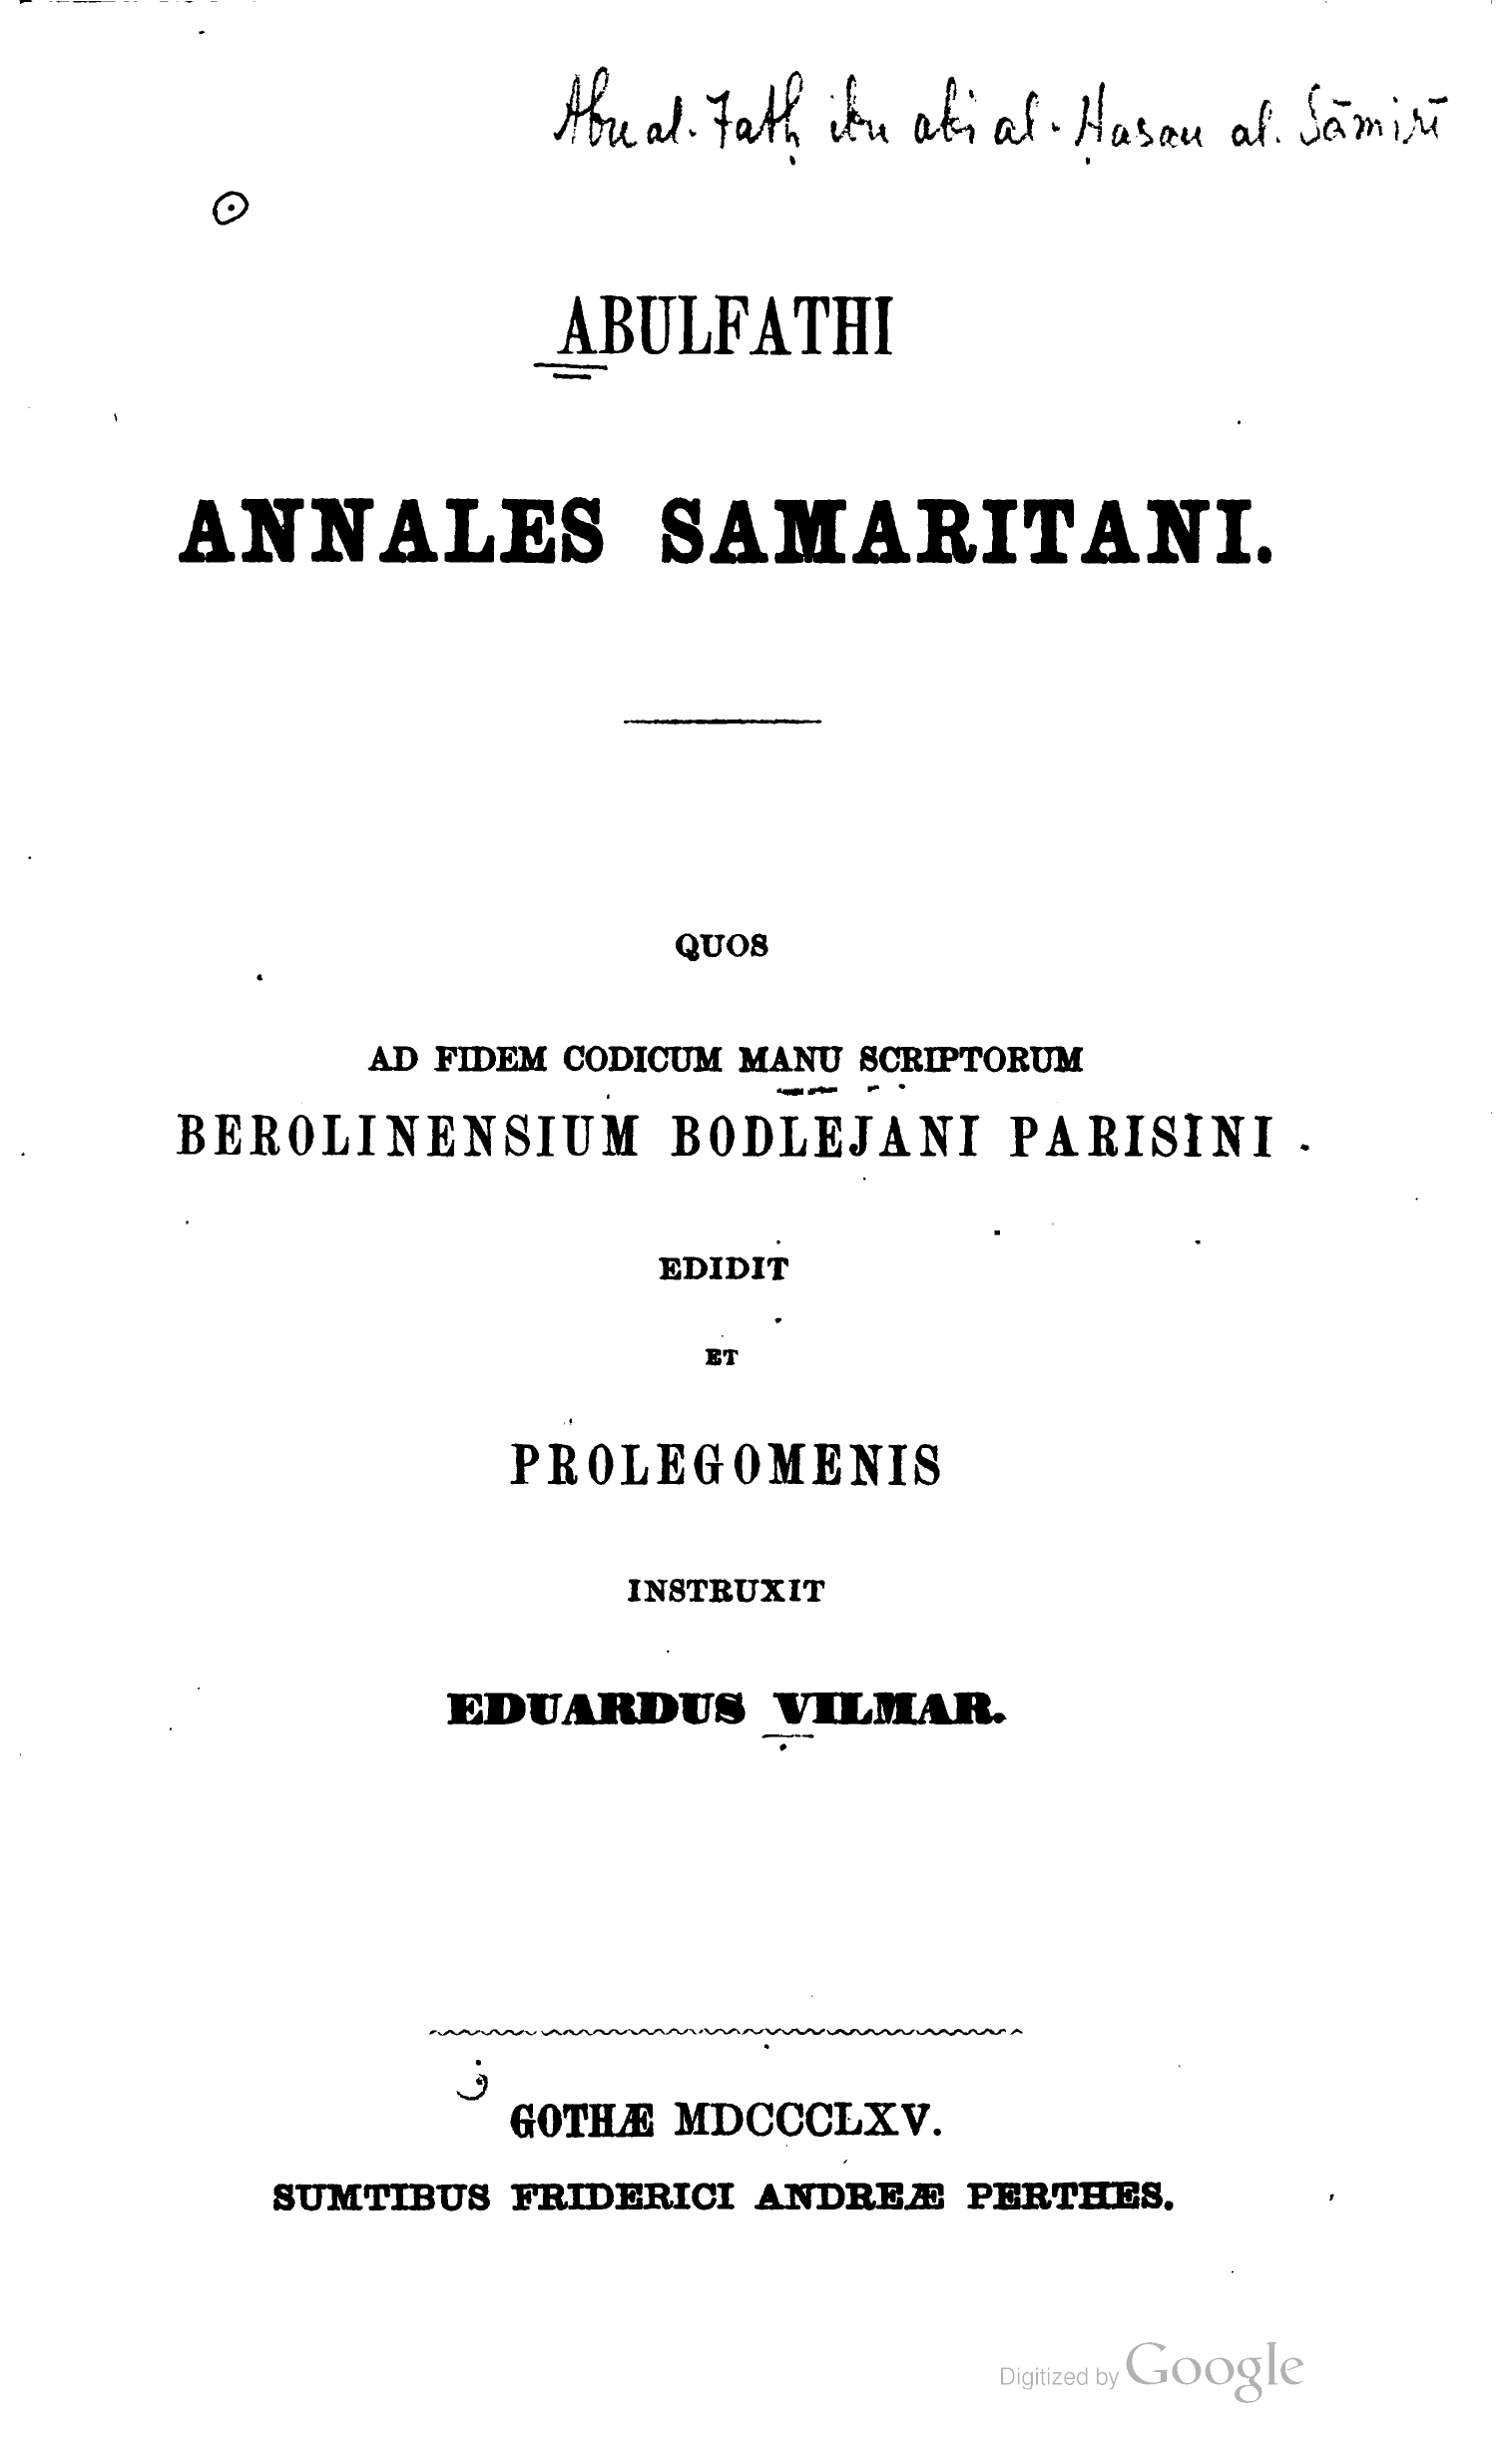 Abu al-Fatḥ ibn abi al-Ḥasan al-Sāmirī
ABULFATHI
ANNALES SAMARITANI.
QUOS
AD FIDEM CODICUM MANU SCRIPTORUM
BEROLINENSIUM BODLEJANI PARISINI
EDIDIT
ET
PROLEGOMENIS
INSTRUXIT
EDUARDUS VILMAR.
GOTHÆ MDCCCLXV.
SUMTIBUS FRIDERICI ANDREÆ PERTHES.
Digitized by Google